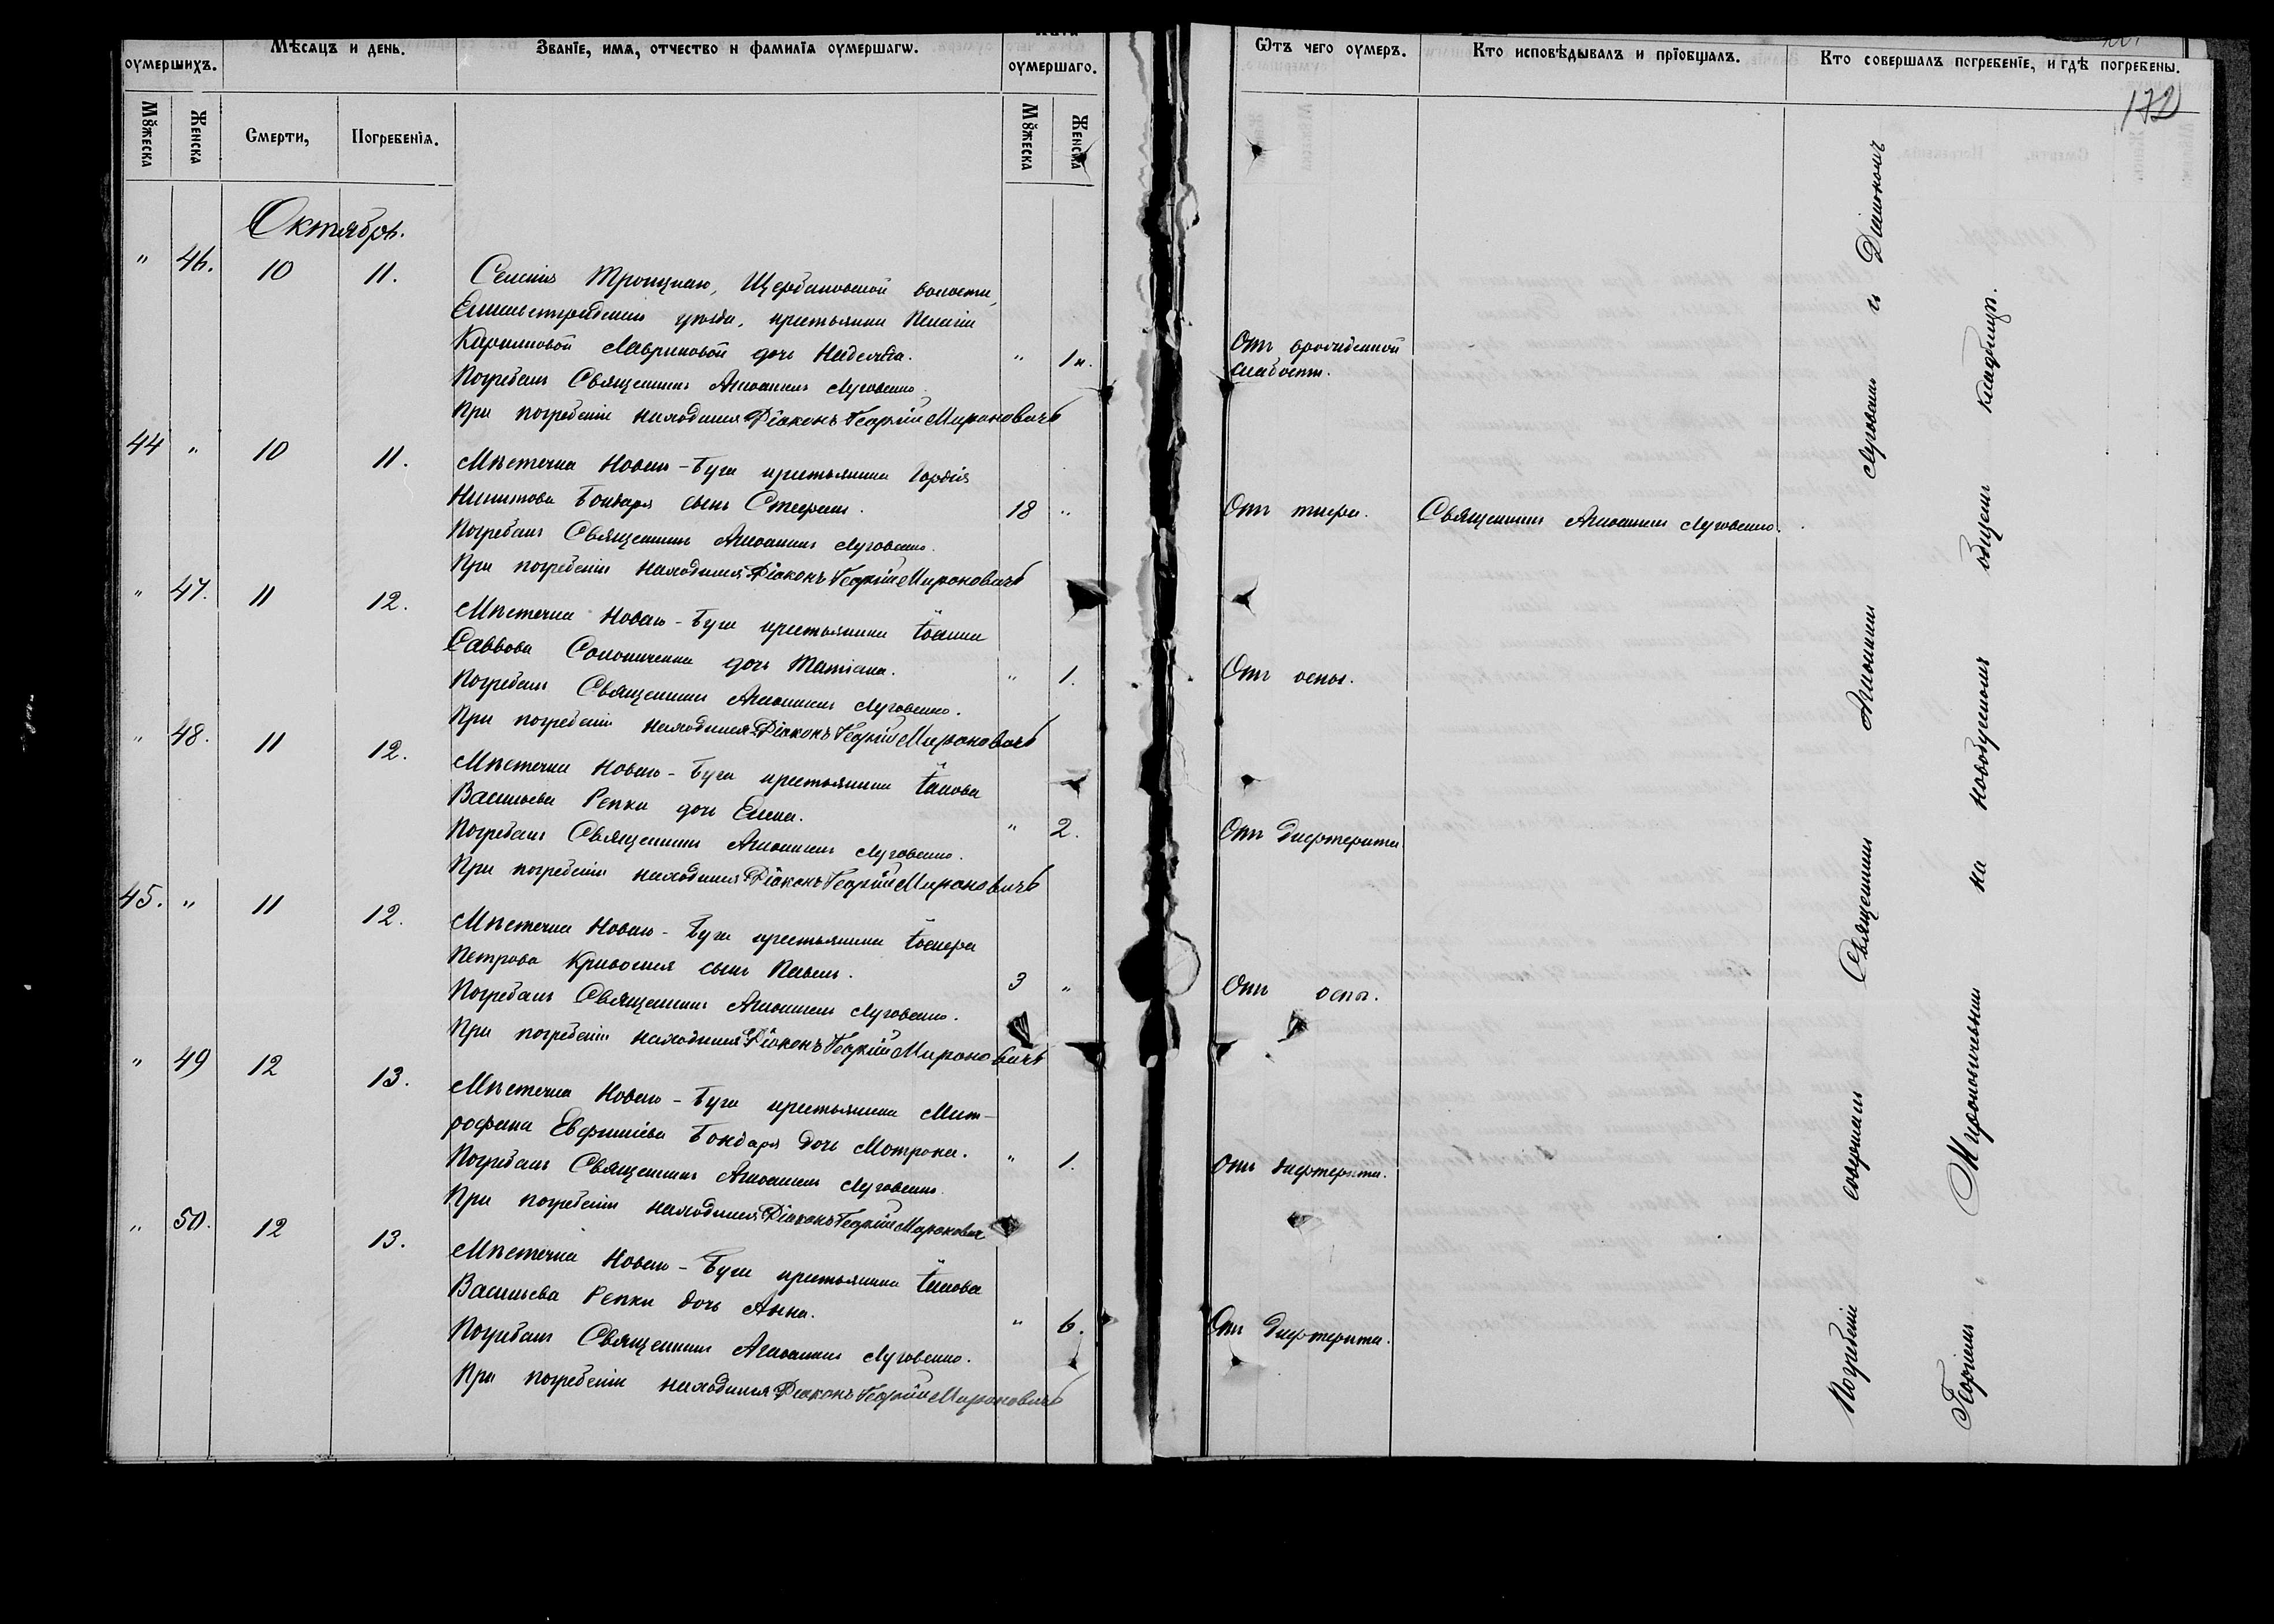 оумершихъ.
Мѣсяцъ и день.
Званїе, имѧ, отчество и фамилїа оумершагѡ.
оумершаго.
Ѿтъ чего оумеръ.
Кто исповѣдывалъ и прїобщалъ.
Кто совершалъ погребенїе, и гдѣ погребены.
172
Мꙋжеска
Женска
Смерти,
Погребенїѧ.
Мꙋжеска
Женска
Октябрь.
" 46. 10 11.
Селенія Троицкаго, Щербановской волости,
Елисаветградскаго уѣзда, крестьянки Пелагіи
Кирилловой Лавриновой дочь Надежда. " 1 н. Отъ врожденной
слабости.
Погребалъ Священникъ Луговенко.
При погребеніи находился Діаконъ Георгій Мироновичъ
44 " 10 11.
Мѣстечка Новаго-Буга крестьянина Гордія
Никитова Бондаря сынъ Стефанъ. 18 " Отъ тифа. Священникъ Луговенко.
Погребалъ Священникъ Луговенко.
При погребеніи находился Діаконъ Георгій Мироновичъ
" 47. 11 12.
Мѣстечка Новаго-Буга крестьянина Іоанна
Саввова дочь Татіана. " 1. Отъ оспы.
Погребалъ Священникъ Луговенко.
При погребеніи находился Діаконъ Георгій Мироновичъ
" 48. 11 12.
Мѣстечка Новаго-Буга крестьянина Іакова
Васильева Репки дочь Елена. " 2. Отъ дифтерита
Погребалъ Священникъ Луговенко.
При погребеніи находился Діаконъ Георгій Мироновичъ
45. " 11 12.
Мѣстечка Новаго-Буга крестьянина
Петрова сынъ Павелъ. 3 " Отъ оспы.
Погребалъ Священникъ Луговенко.
При погребеніи находился Діаконъ Георгій Мироновичъ
" 49 12 13.
Мѣстечка Новаго-Буга крестьянина Мит-
рофана Евфиміева Бондаря дочь Мотрона. " 1. Отъ дифтерита.
Погребалъ Священникъ Луговенко.
При погребеніи находился Діаконъ Георгій Мироновичъ
" 50. 12 13.
Мѣстечка Новаго-Буга крестьянина Іакова
Васильева Репки дочь Анна. " 6. Отъ дифтерита.
Погребалъ Священникъ Луговенко.
При погребеніи находился Діаконъ Георгій Мироновичъ
Погребеніе совершалъ Священникъ и Діакономъ
Георгіемъ Мироновичемъ на новобугскомъ общемъ кладбищѣ.